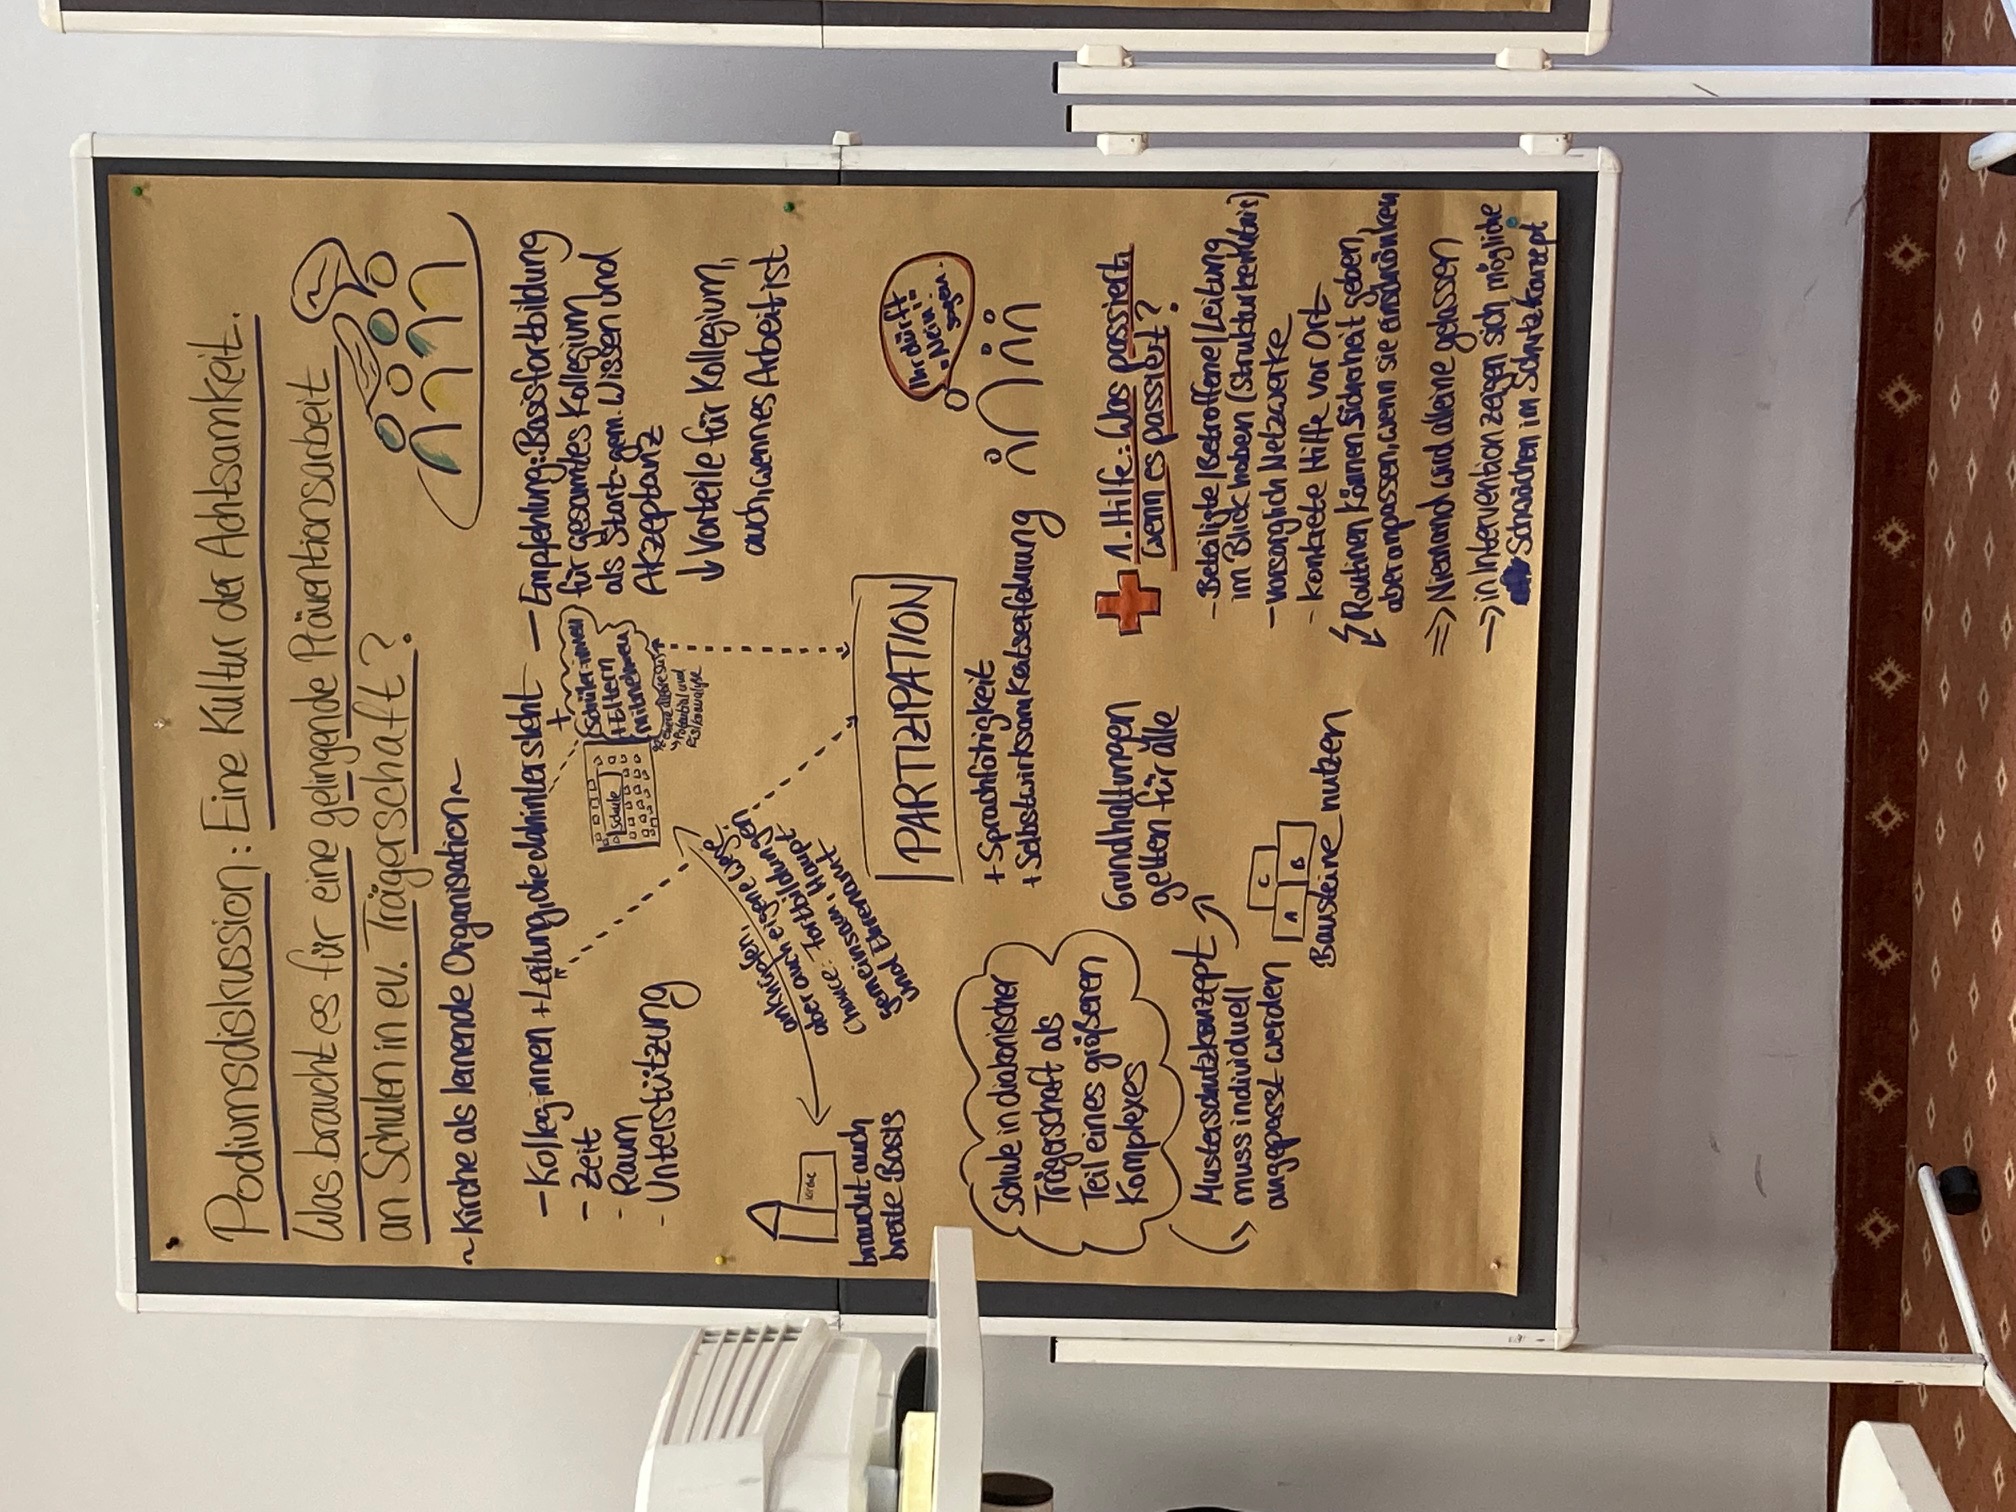 Podiumsdiskussion: Eine Kultur der Achtsamkeit.
Was braucht es für eine gelingende Präventionsarbeit
an Schulen in ev. Trägerschaft?
~Kirche als lernende Organisation~
- Kolleg:innen + Leitung, die dahinter steht
- Zeit
- Raum
- Unterstützung
+
Schüler:innen
+ Eltern
mitnehmen
Schule
→ Potential und
Risikoanalyse
- Empfehlung: Basisfortbildung
für gesamtes Kollegium
als Start. gem. Wissen und
Akzeptanz
↳ Vorteile für Kollegium,
auch, wenn es Arbeit ist
anknüpfen,
aber auch eigene Wege.
Chance: Fortbildungen
gemeinsam, Haupt-
und Ehrenamt
Kirche
braucht auch
breite Basis
PARTIZIPATION
+ Sprachfähigkeit
+ Selbstwirksamkeitserfahrung
Ihr dürft
"Nein"
sagen.
Schule in diakonischer
Trägerschaft als
Teil eines größeren
Komplexes
Grundhaltungen
gelten für alle
Musterschutzkonzept
muss individuell
angepasst werden
A B C
Bausteine nutzen
1. Hilfe: Was passiert,
wenn es passiert?
- Beteiligte/Betroffene/Leitung
im Blick haben (Strukturkenntnis)
- vorsorglich Netzwerke
- konkrete Hilfe vor Ort
Routinen können Sicherheit geben,
aber anpassen, wenn sie einschränken
=> Niemand wird alleine gelassen
→ in Intervention zeigen sich mögliche
Schwächen im Schutzkonzept